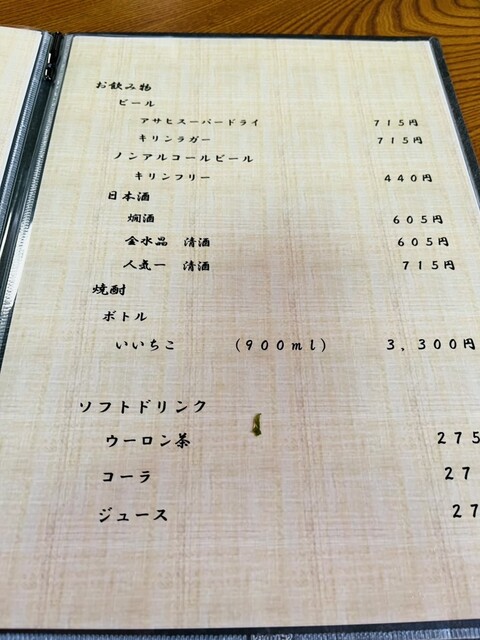 お飲み物
ビール
アサヒスーパードライ 715円
キリンラガー 715円
ノンアルコールビール
キリンフリー 440円
日本酒
燗酒 605円
金水晶 清酒 605円
人気一 清酒 715円
焼酎
ボトル
いいちこ (900ml) 3,300円
ソフトドリンク
ウーロン茶 275
コーラ 27
ジュース 27